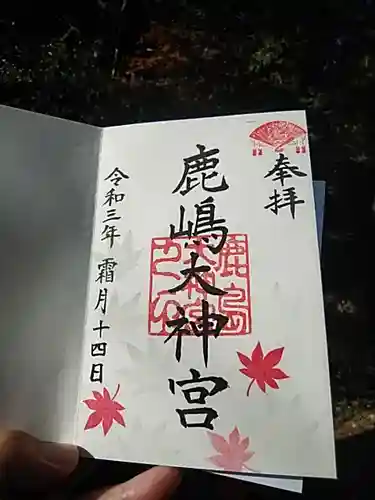 奉拝
鹿嶋大神宮
令和三年 霜月 十四日